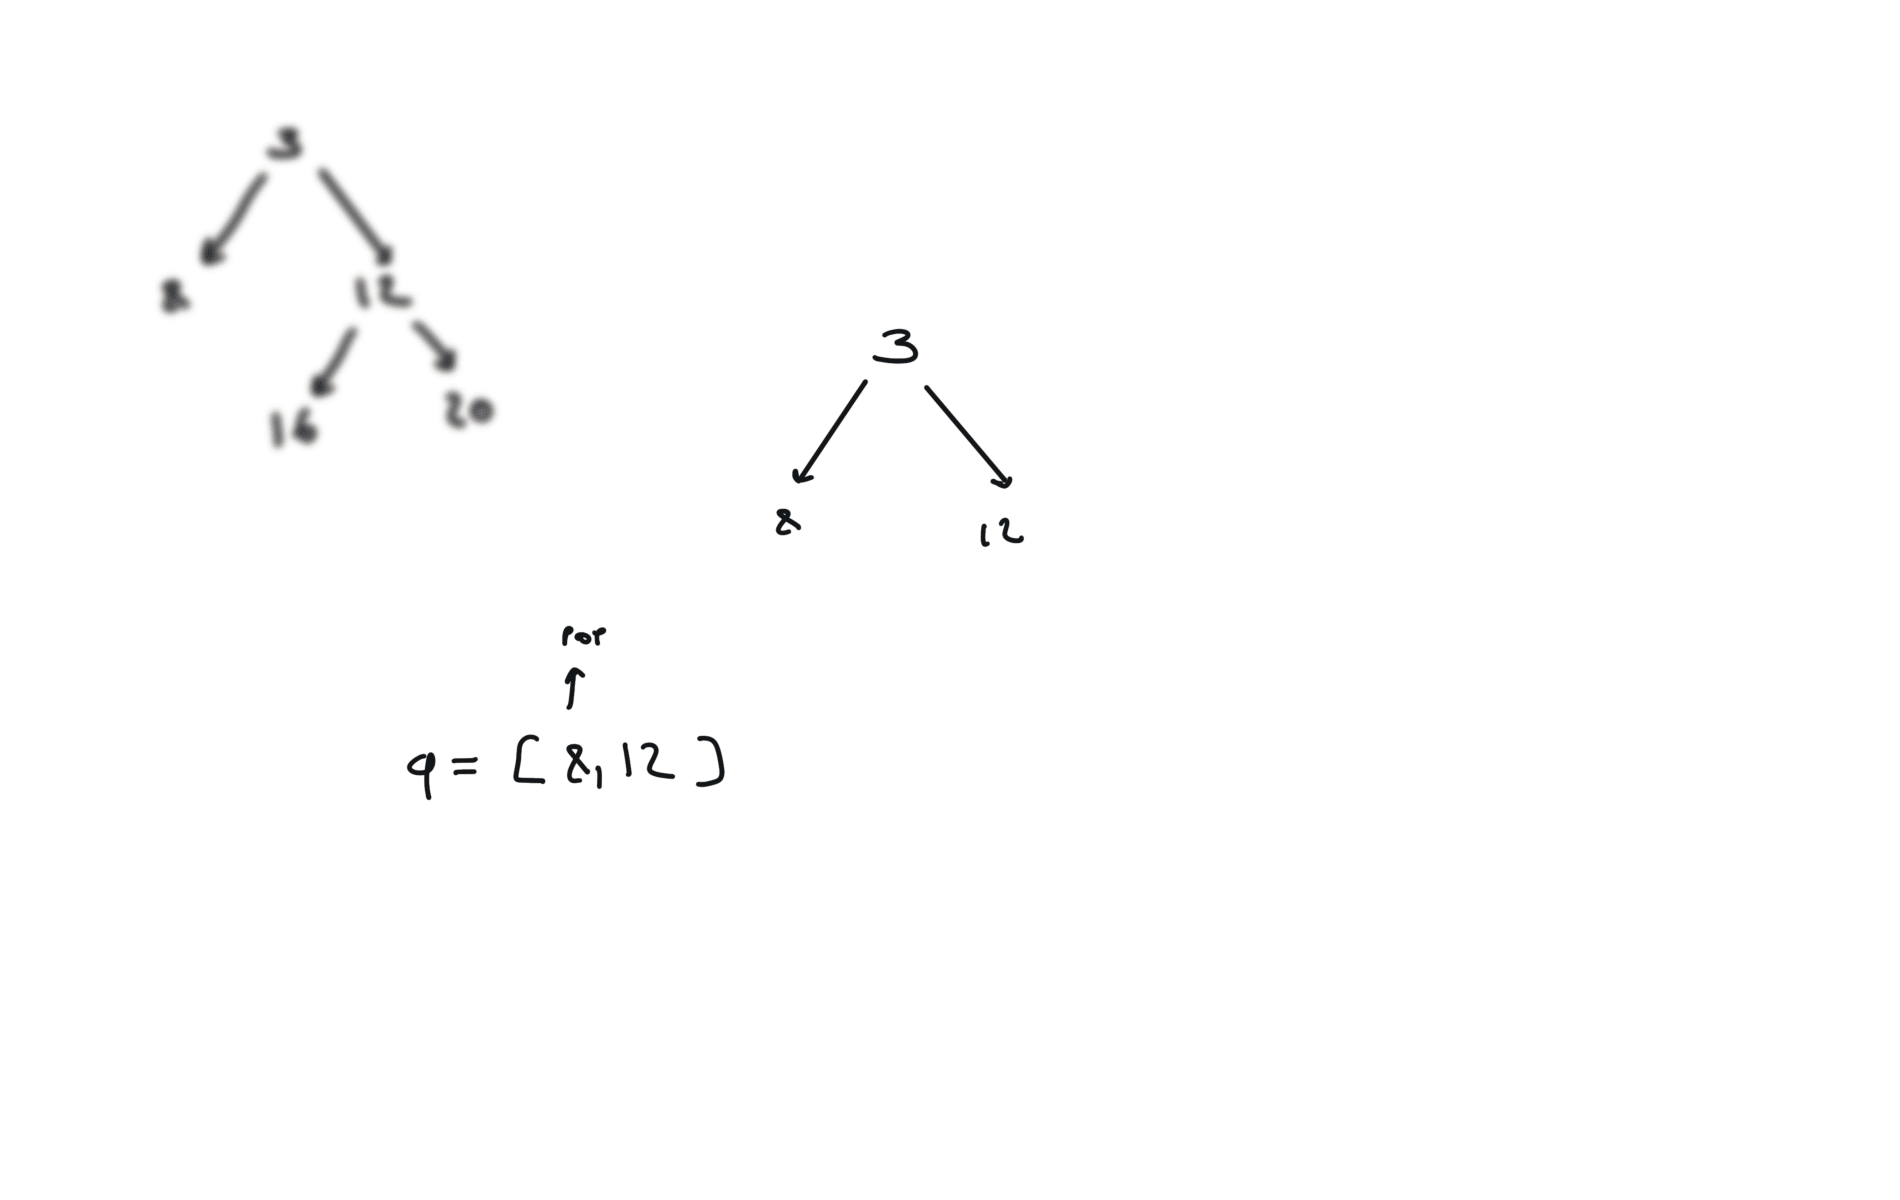 3
8
12
16
20
3
8
12
pop
q = [ 8, 12 ]